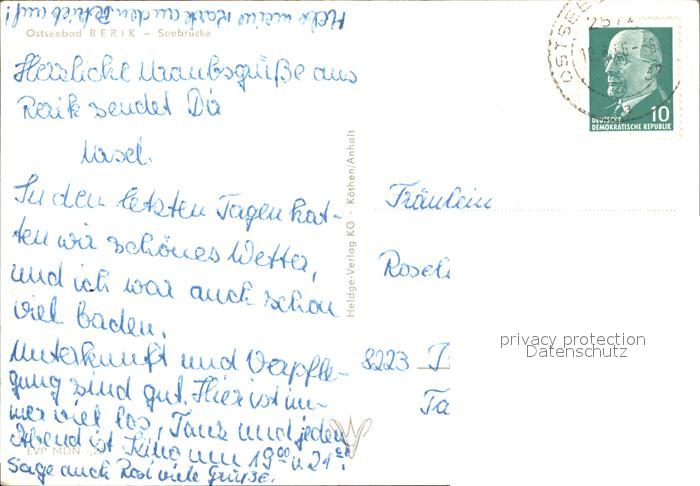 Ostseebad RERIK – Seebrücke
Herzliche Urlaubsgrüße aus
Rerik sendet Dir
In den letzten Tagen hat-
ten wir schönes Wetter,
und ich war auch schon
viel baden.
Unterkunft und Verpfle-
gung sind gut. Hier ist im-
mer viel los, Tanz und jeden
Abend ist Kino um 19⁰⁰ u. 21
EVP MDN
Sage auch Rosi viele Grüße.
Heldge-Verlag KG · Köthen/Anhalt
OSTSEE
DEUTSCHE
DEMOKRATISCHE REPUBLIK
10
Fräulein
Rosel
8223
privacy protection
Datenschutz